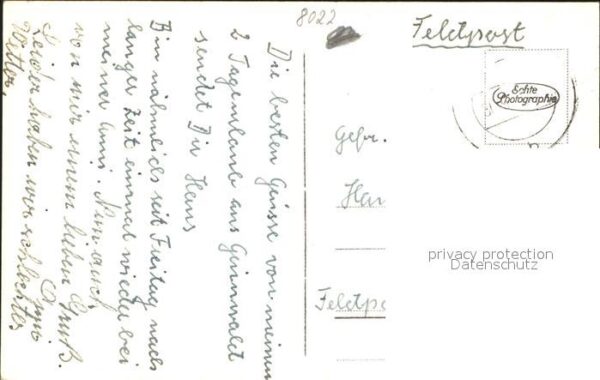 8022
Feldpost
Echte
Photographie
Die besten Grüsse von meinem
2 Tagurlaub aus Grünwald
sendet Dir Hans
Bin nämlich seit Freitag nach
langer Zeit einmal wieder bei
meiner Anni. Nun auch
von mir einen lieben Gruß.
Leider haben wir schlechtes
Wetter,
Gefr.
Han
Feldpo
privacy protection
Datenschutz